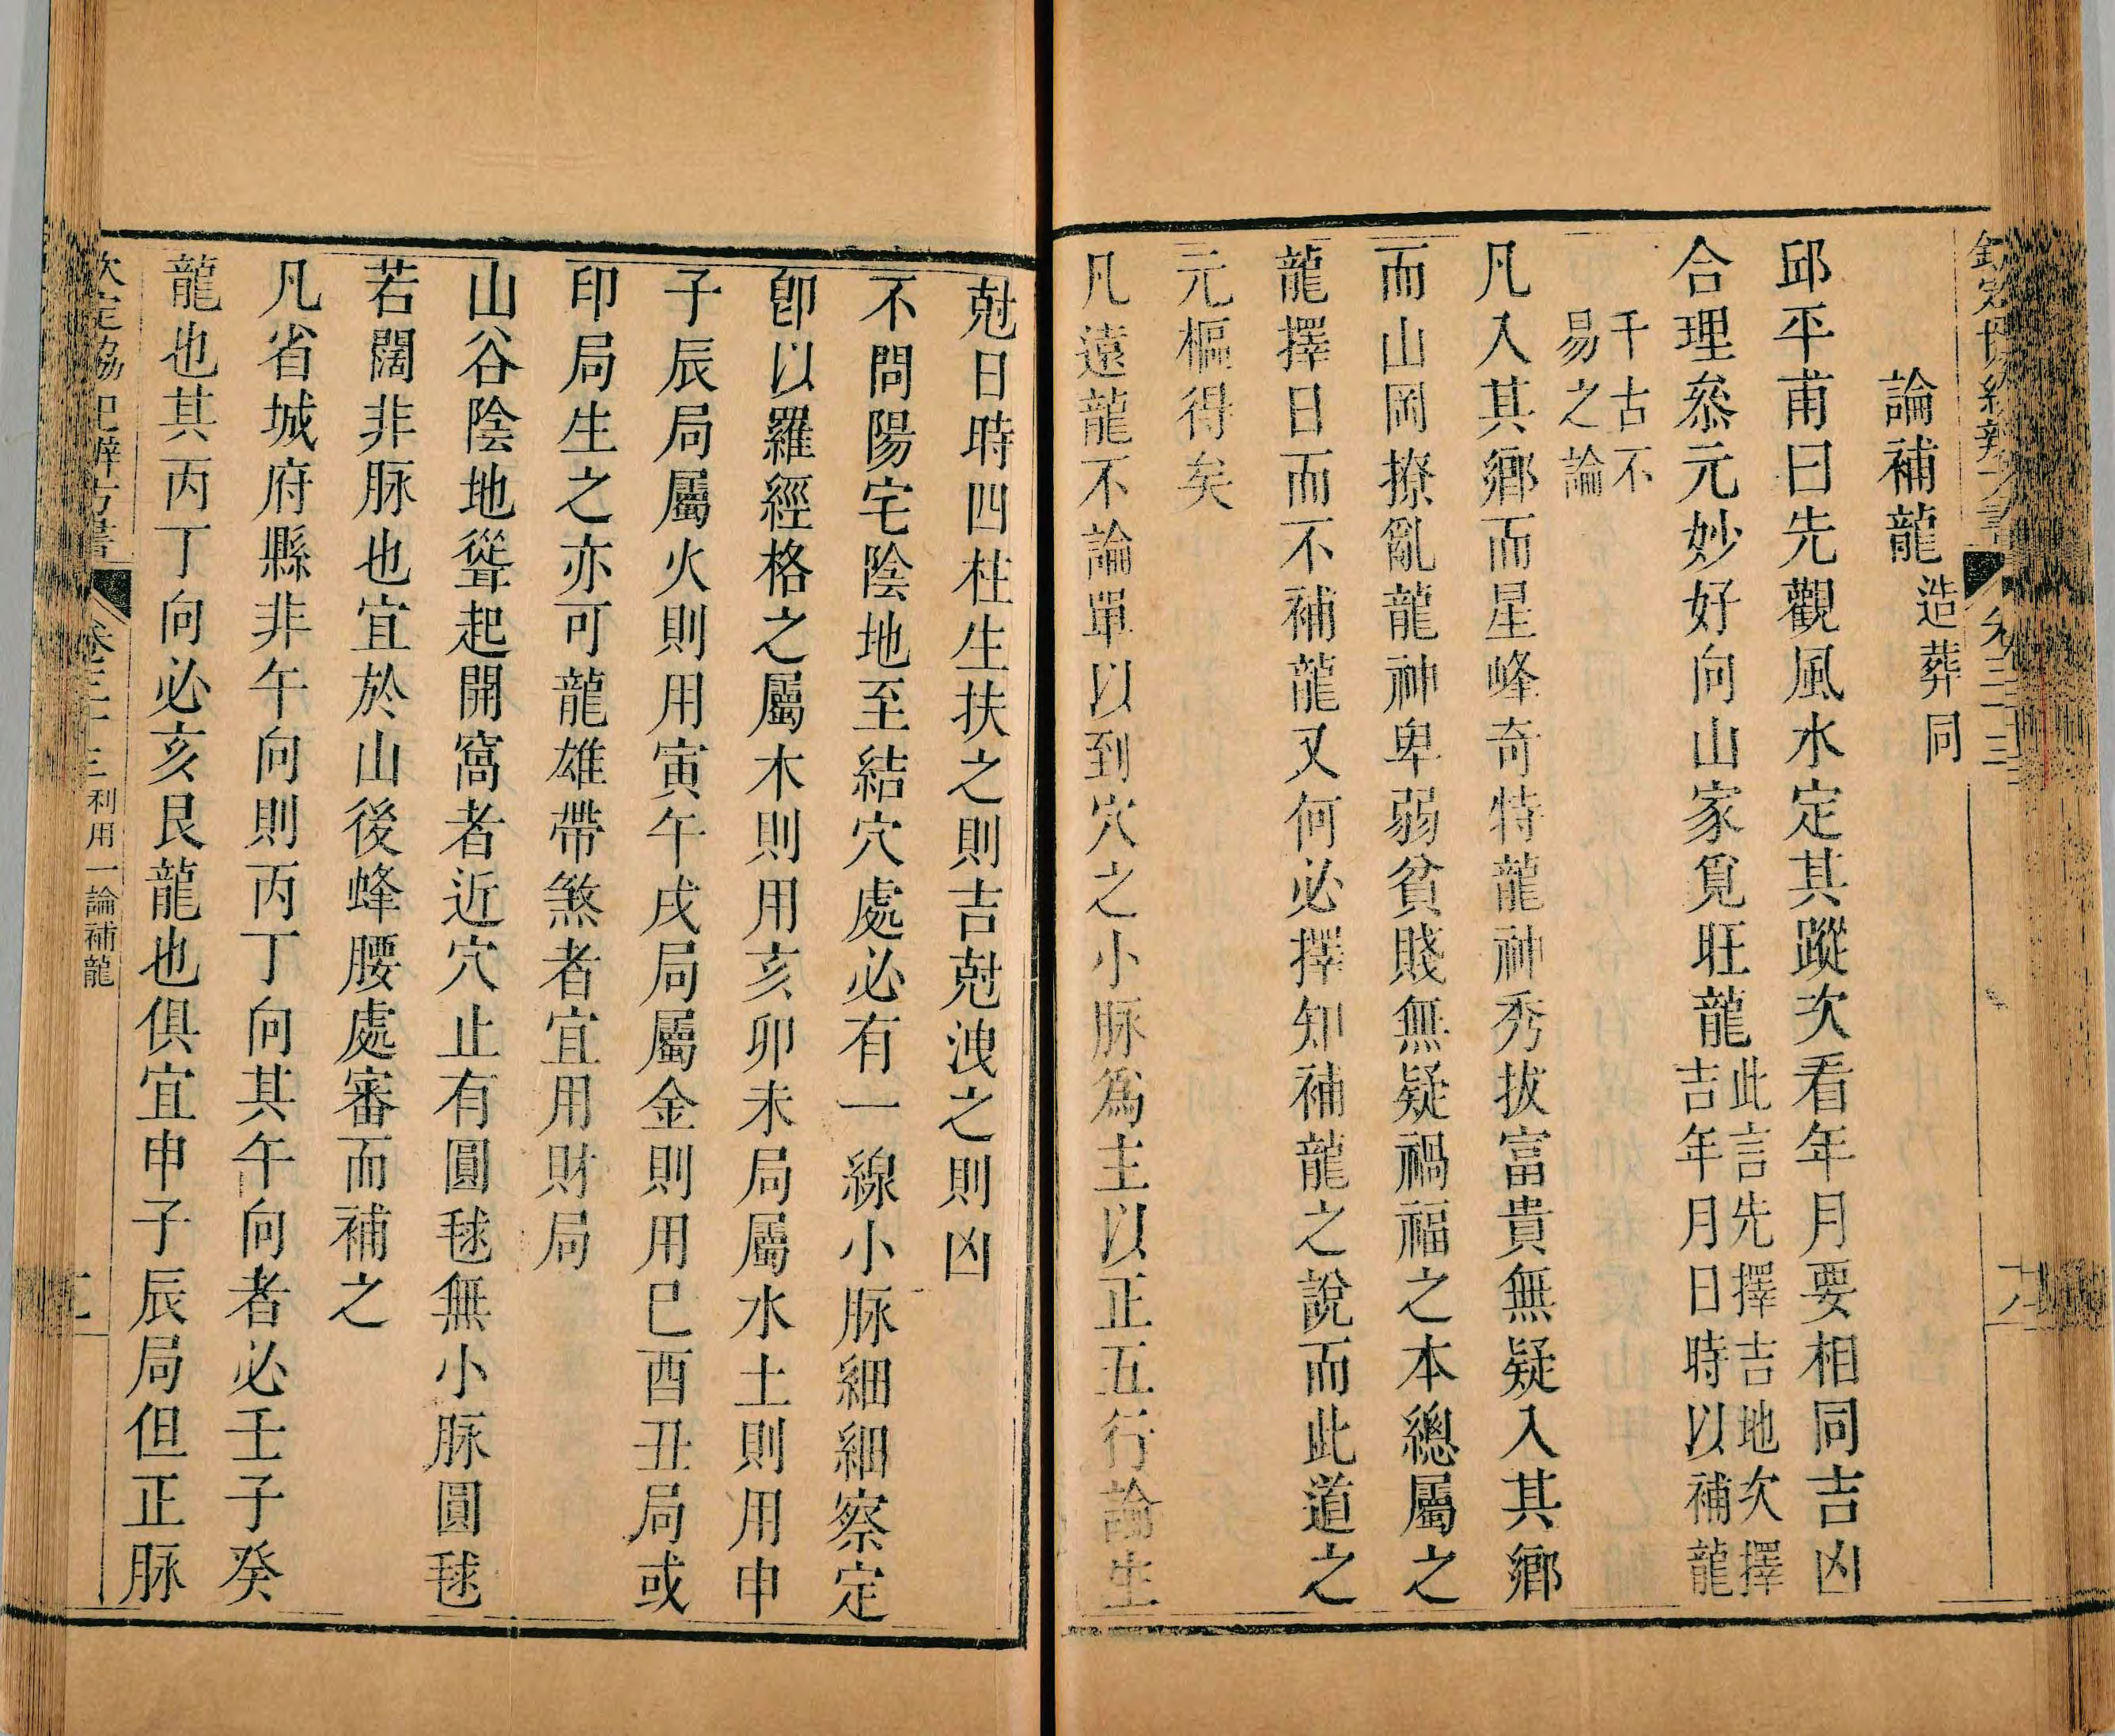 論補龍造葬同
邱平甫曰先觀風水定其蹤次看年月要相同吉凶
合理叅元妙好向山家覓旺龍此言先擇吉地次擇吉年月日時以補龍
千古不易之論
凡入其鄉而星峰奇特龍神秀拔富貴無疑入其鄉
而山岡撩亂龍神卑弱貧賤無疑禍福之本總屬之
龍擇日而不補龍又何必擇知補龍之說而此道之
元樞得矣
凡遠龍不論單以到穴之小脉爲主以正五行論生
尅日時四柱生扶之則吉尅洩之則凶
不問陽宅陰地至結穴處必有一線小脉細細察定
卽以羅經格之屬木則用亥卯未局屬水土則用申
子辰局屬火則用寅午戌局屬金則用巳酉丑局或
印局生之亦可龍雄帶煞者宜用財局
山谷陰地聳起開窩者近穴止有圓毬無小脉圓毬
若闊非脉也宜於山後蜂腰處審而補之
凡省城府縣非午向則丙丁向其午向者必壬子癸
龍也其丙丁向必亥艮龍也俱宜申子辰局但正脉
欽定協紀辨方書 卷三十三 利用一論補龍